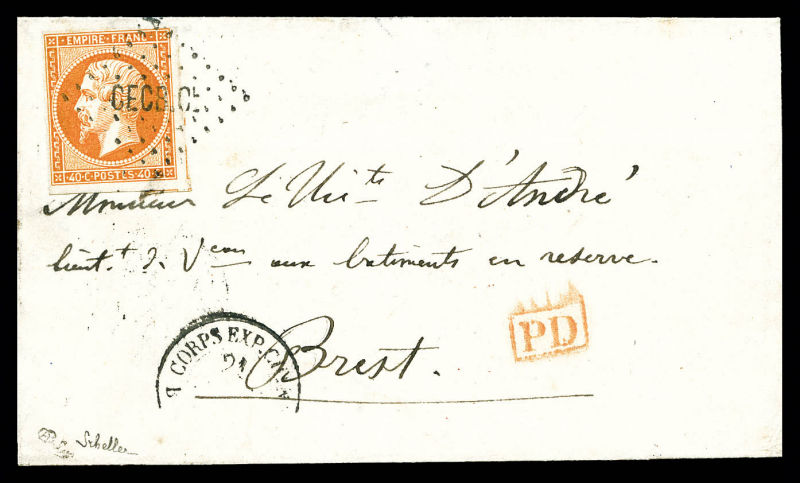 EMPIRE FRANC
CECB.
40·C·POSTES·40
Monsieur Le Victe D'André
lieut.t d. Veau aux batiments en reserve.
PD
CORPS EXP.
21
Brest.
Scheller